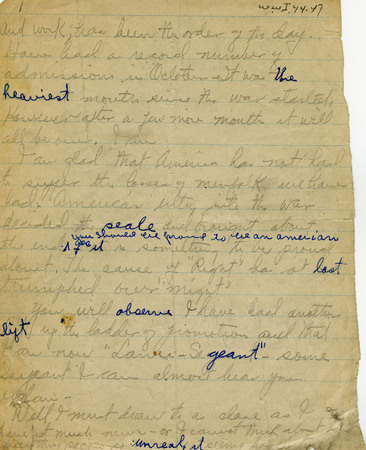 1
WWI.44.47
and work, has been the order of the day.
Have had a record number of
admissions in October - it was the
heaviest month since the war started,
however after a few more month it will
all be over. I am
I am glad that America has not had
to suffer the losses of menfolk we have
had. American entry into the war
decided the scale and brought about
you should be proud to be an american
the end is something to be proud
about, the cause of "Right" has at last
triumphed over "might"
You will observe I have had another
lift up the ladder of promotion and that
I am now "Lance-Sergeant" - some
sergeant I can almost hear you
Well I must draw to a close as I
have not much news - or I cannot think about
unreal it